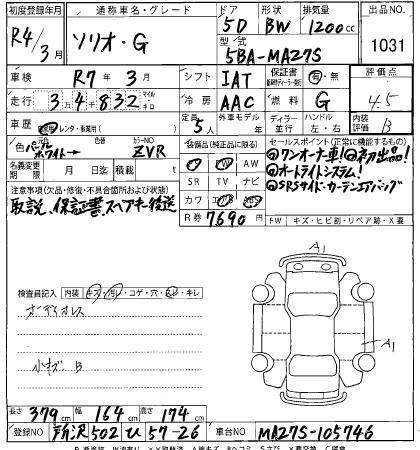 初度登録年月 通称車名・グレード ドア 形状 排気量 出品NO.
R4/3月 ソリオ・G 5D BW 1200cc 1031
型式 5BA-MA27S
車検 R7年3月 シフト IAT 保証書 有・無 評価点
走行 34832 マイル キロ 冷房 AAC 燃料 G 4.5
車歴 レンタ・事業用( ) 定員 5人 外車モデル年 ディーラー・並行 ハンドル 左・右 内装評価 B
色 パールホワイト→ 色替 カラーNO ZVR 装備品(純正品に限る) セールスポイント(正常に機能するもの)
名義変更期限 月 日迄 積載 t AW ①ワンオーナー車!②初出品!
SR TV ナビ ③オートライトシステム!
注意事項(欠品・修復・不具合箇所および状態) カワ ④SRSサイド・カーテンエアバッグ
取説、保証書、スペアキー後送 R券 7690円 FW キズ・ヒビ割・リペア跡・X要
A1
検査員記入 内装 キズ・汚レ・コゲ・穴・スレ・キレ
オーディオレス
A1
小キズ B
長さ 379cm 幅 164cm 高さ 174cm
登録NO 所沢 502 ひ 57-26 車台NO MA27S-105746